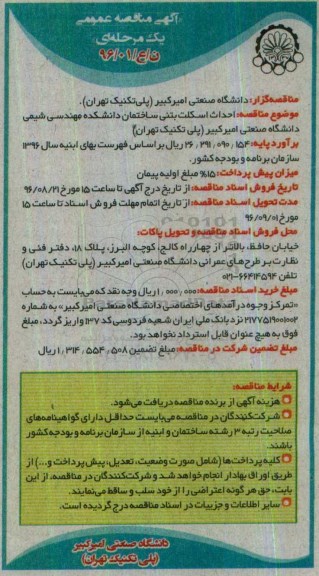 آگهی مناقصه عمومی
یک مرحله‌ای
ن/ع/۹۶/۰۱
مناقصه‌گزار: دانشگاه صنعتی امیرکبیر (پلی‌تکنیک تهران).
موضوع مناقصه: احداث اسکلت بتنی ساختمان دانشکده مهندسی شیمی
دانشگاه صنعتی امیرکبیر (پلی تکنیک تهران)
برآورد پایه: ۲۶,۲۹۱,۰۹۰,۱۵۴ ریال بر اساس فهرست بهای ابنیه سال ۱۳۹۶
سازمان برنامه و بودجه کشور.
میزان پیش پرداخت: ۱۵% مبلغ اولیه پیمان
تاریخ فروش اسناد مناقصه: از تاریخ درج آگهی تا ساعت ۱۵ مورخ ۹۶/۰۸/۲۱
مدت تحویل اسناد مناقصه: از تاریخ اتمام مهلت فروش اسناد تا ساعت ۱۵
مورخ ۹۶/۰۹/۰۱
محل فروش اسناد مناقصه و تحویل پاکات:
خیابان حافظ، بالاتر از چهارراه کالج، کوچه البرز، پلاک ۱۸، دفتر فنی و
نظارت بر طرح‌های عمرانی دانشگاه صنعتی امیرکبیر (پلی تکنیک تهران)
تلفن ۶۶۴۱۴۵۹۴-۰۲۱
مبلغ خرید اسناد مناقصه: ۱,۰۰۰,۰۰۰ ریال وجه نقد که می‌بایست به حساب
«تمرکز وجوه درآمدهای اختصاصی دانشگاه صنعتی امیرکبیر» به شماره
۲۱۷۷۵۱۹۰۰۱۰۰۲ نزد بانک ملی ایران شعبه فردوسی کد ۱۳۷ واریز گردد، مبلغ
فوق به هیچ عنوان قابل استرداد نخواهد بود.
مبلغ تضمین شرکت در مناقصه: مبلغ تضمین ۱,۳۱۴,۵۵۴,۵۰۸ ریال
شرایط مناقصه:
هزینه آگهی از برنده مناقصه دریافت می‌شود.
شرکت‌کنندگان در مناقصه می‌بایست حداقل دارای گواهینامه‌های
صلاحیت رتبه ۳ رشته ساختمان و ابنیه از سازمان برنامه و بودجه کشور
باشند.
کلیه پرداخت‌ها (شامل صورت وضعیت، تعدیل، پیش پرداخت و...) از
طریق اوراق بهادار انجام خواهد شد و شرکت‌کنندگان در مناقصه، از این
بابت، حق هرگونه اعتراضی را از خود سلب و ساقط می‌نمایند.
سایر اطلاعات و جزییات در اسناد مناقصه درج گردیده است.
دانشگاه صنعتی امیرکبیر
(پلی تکنیک تهران)